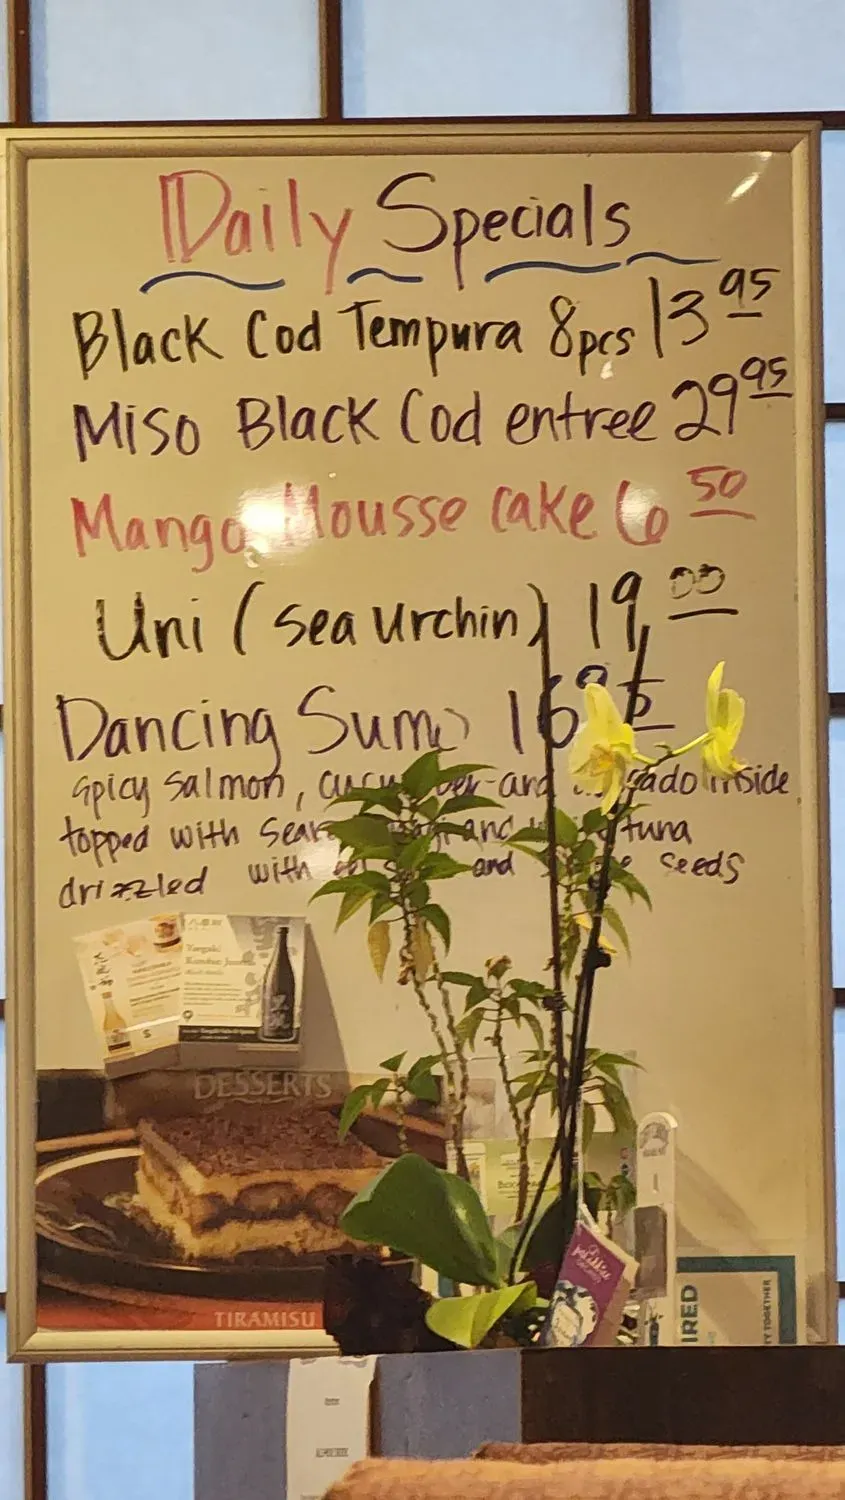 Daily Specials
Black Cod Tempura 8pcs 13 95
Miso Black Cod entree 29 95
Mango Mousse cake 6 50
Uni (sea urchin) 19.00
Dancing Sumo 16 95
spicy salmon, cucumber and avocado inside
topped with and tuna
drizzled with and seeds
DESSERTS
TIRAMISU